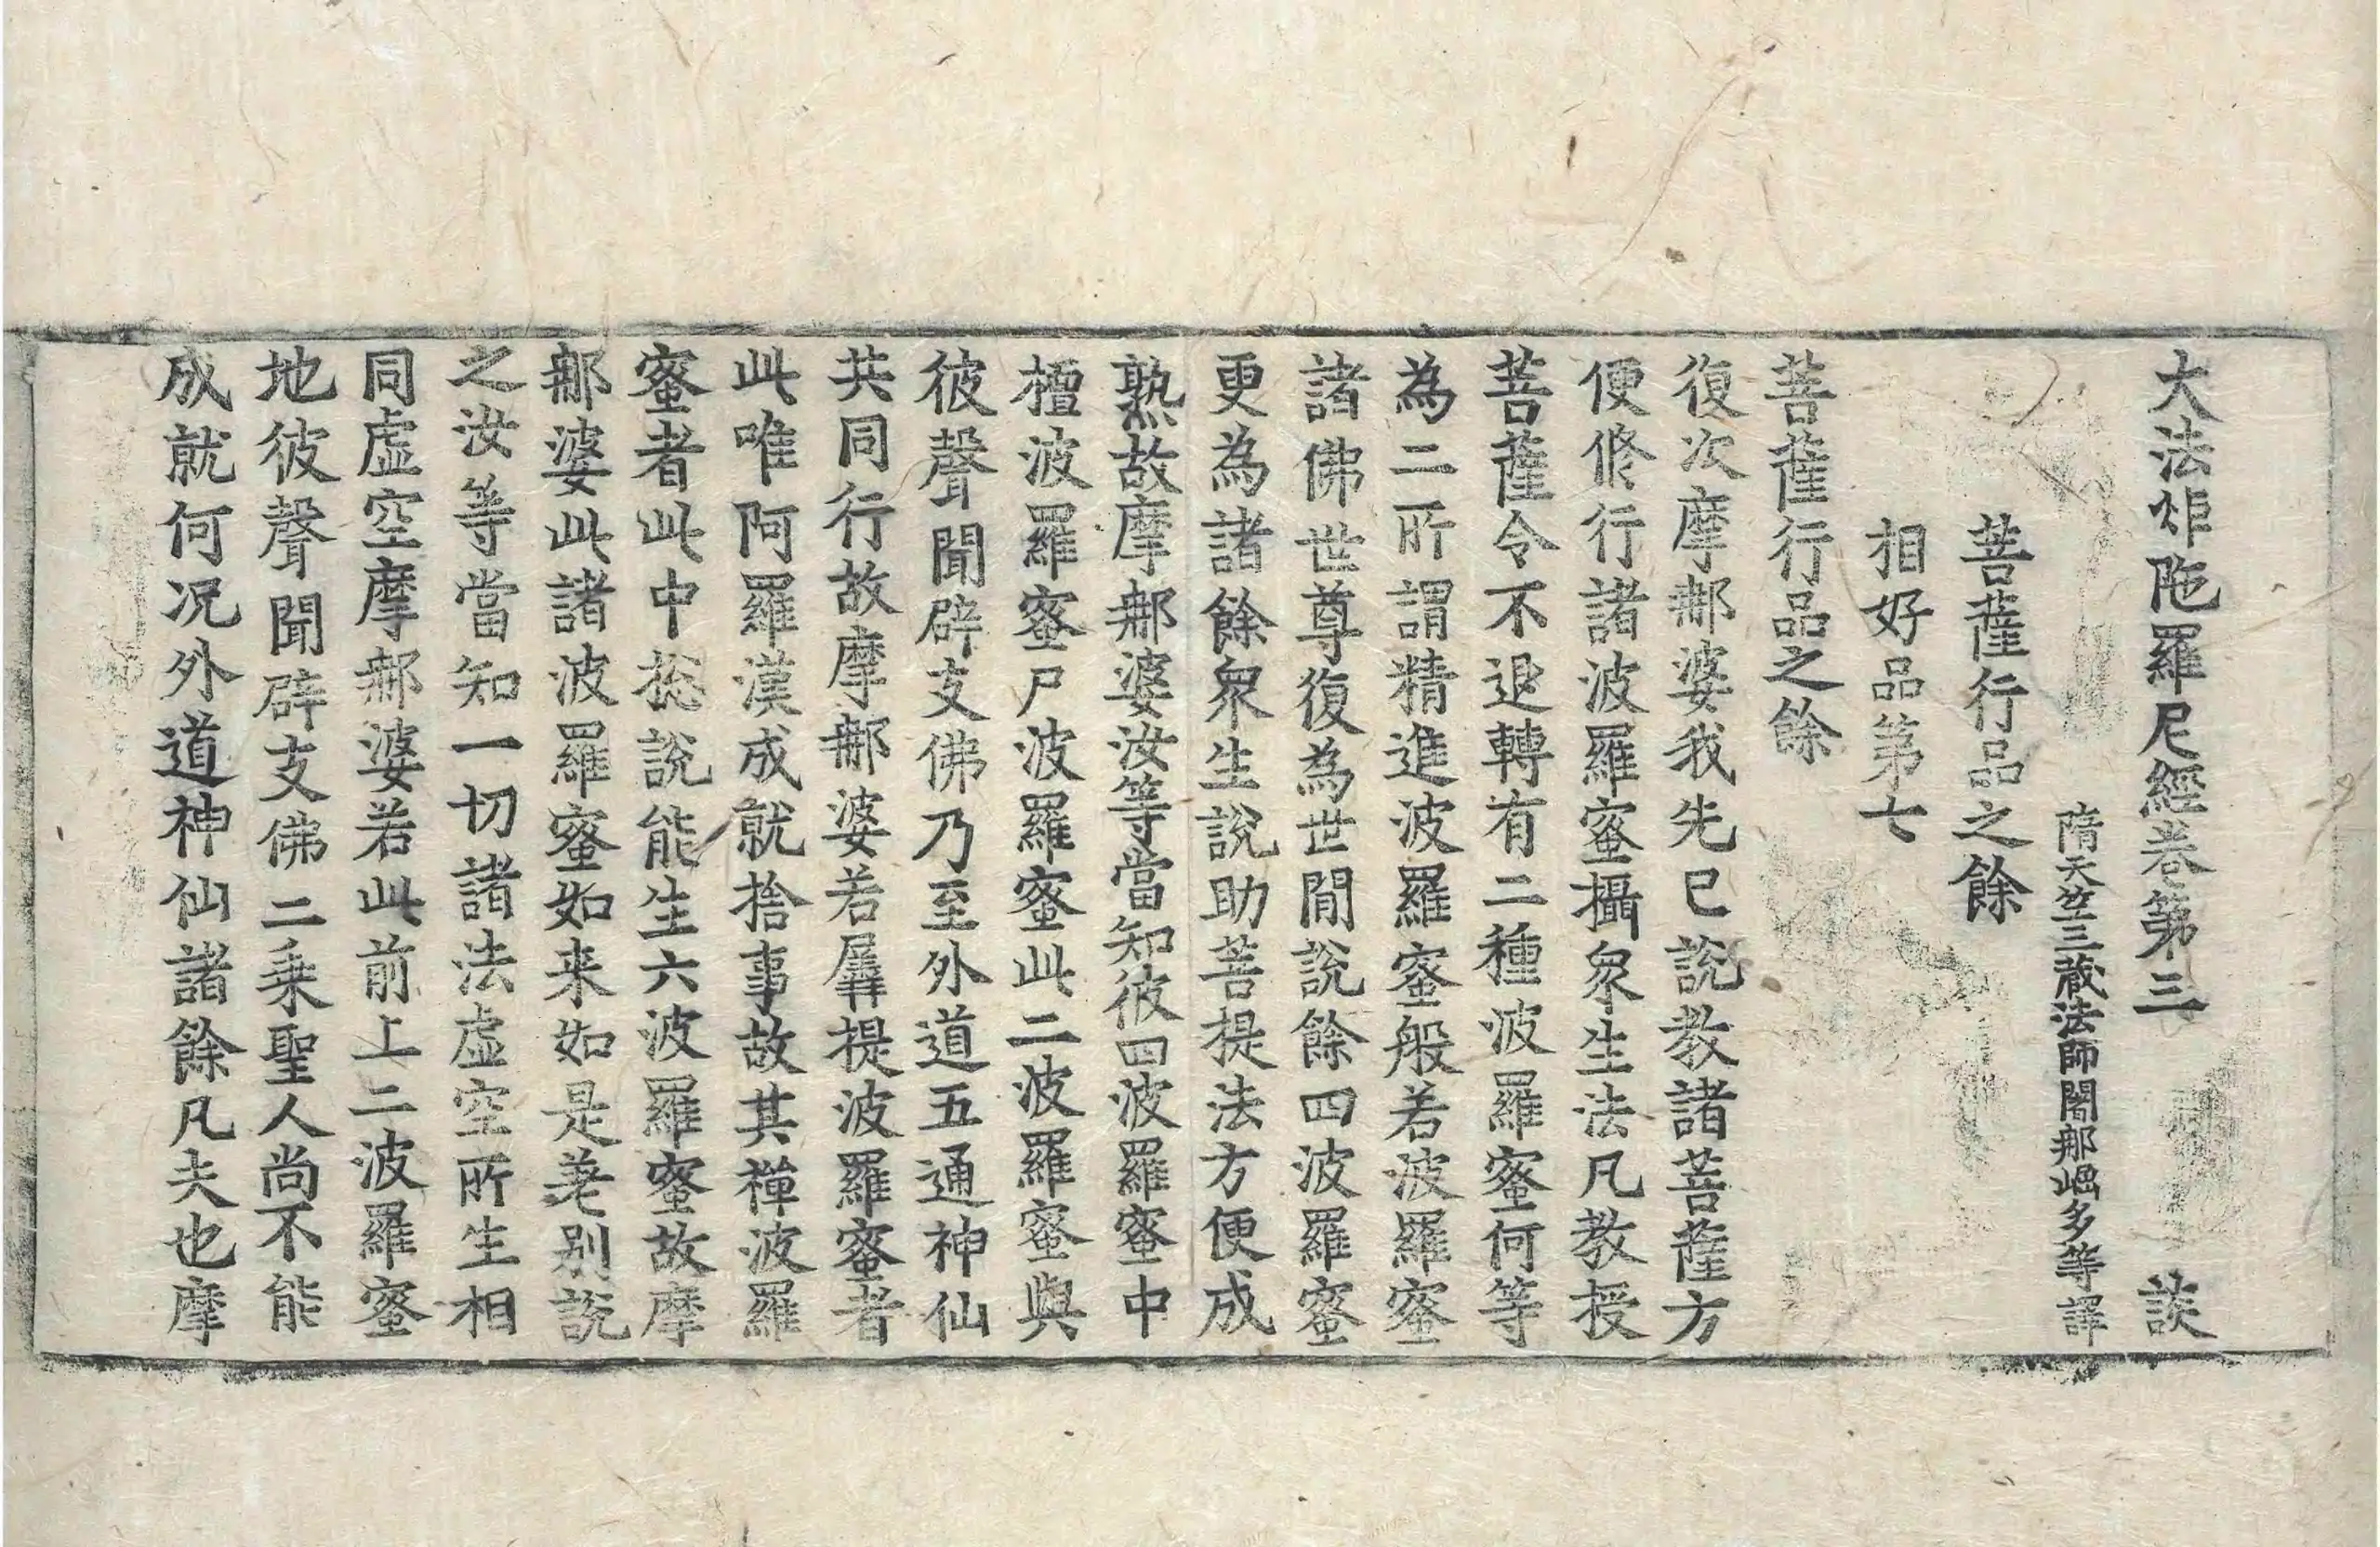 大法炬陁羅尼經卷第三 談
隋天竺三藏法師闍那崛多等譯
菩薩行品之餘
相好品第七
菩薩行品之餘
復次摩那婆我先已說教諸菩薩方
便修行諸波羅蜜攝衆生法凡教授
菩薩令不退轉有二種波羅蜜何等
為二所謂精進波羅蜜般若波羅蜜
諸佛世尊復為世間說餘四波羅蜜
更為諸餘衆生說助菩提法方便成
熟故摩那婆汝等當知彼四波羅蜜中
檀波羅蜜尸波羅蜜此二波羅蜜與
彼聲聞辟支佛乃至外道五通神仙
共同行故摩那婆若羼提波羅蜜者
此唯阿羅漢成就捨事故其禪波羅
蜜者此中捴說能生六波羅蜜故摩
那婆此諸波羅蜜如来如是差別說
之汝等當知一切諸法虛空所生相
同虛空摩那婆若此前上二波羅蜜
地彼聲聞辟支佛二乘聖人尚不能
成就何況外道神仙諸餘凡夫也摩